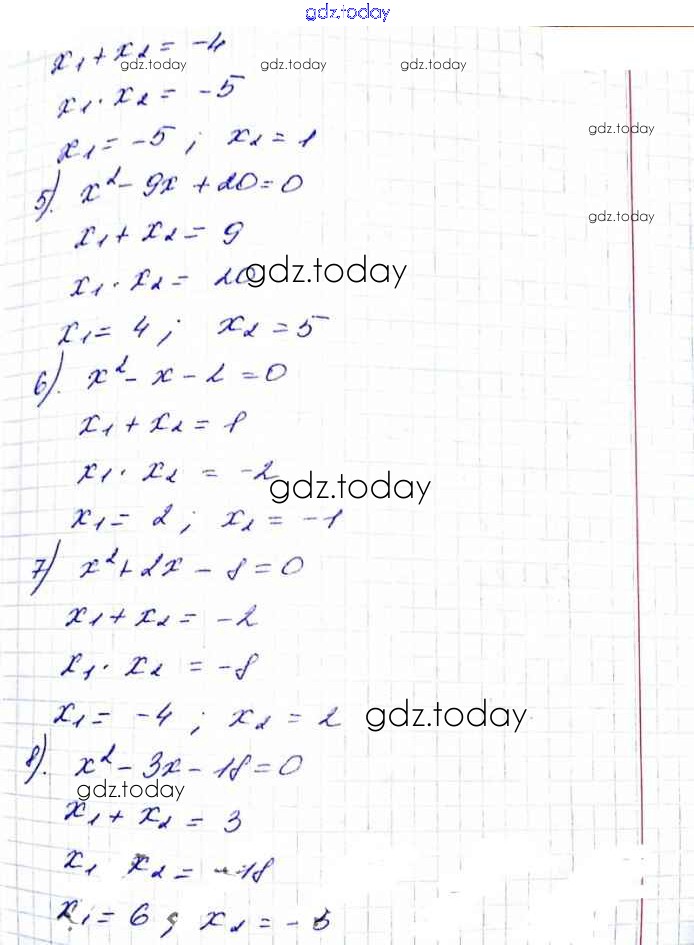 gdz.today
x₁ + x₂ = -4
gdz.today gdz.today gdz.today
x₁ · x₂ = -5
gdz.today
x₁ = -5 ; x₂ = 1
5). x² - 9x + 20 = 0
gdz.today
x₁ + x₂ = 9
x₁ · x₂ = 20
gdz.today
x₁ = 4 ; x₂ = 5
6). x² - x - 2 = 0
x₁ + x₂ = 1
x₁ · x₂ = -2
gdz.today
x₁ = 2 ; x₂ = -1
7) x² + 2x - 8 = 0
x₁ + x₂ = -2
x₁ · x₂ = -8
x₁ = -4 ; x₂ = 2
gdz.today
8). x² - 3x - 18 = 0
gdz.today
x₁ + x₂ = 3
x₁ x₂ = -18
x₁ = 6 ; x₂ = -